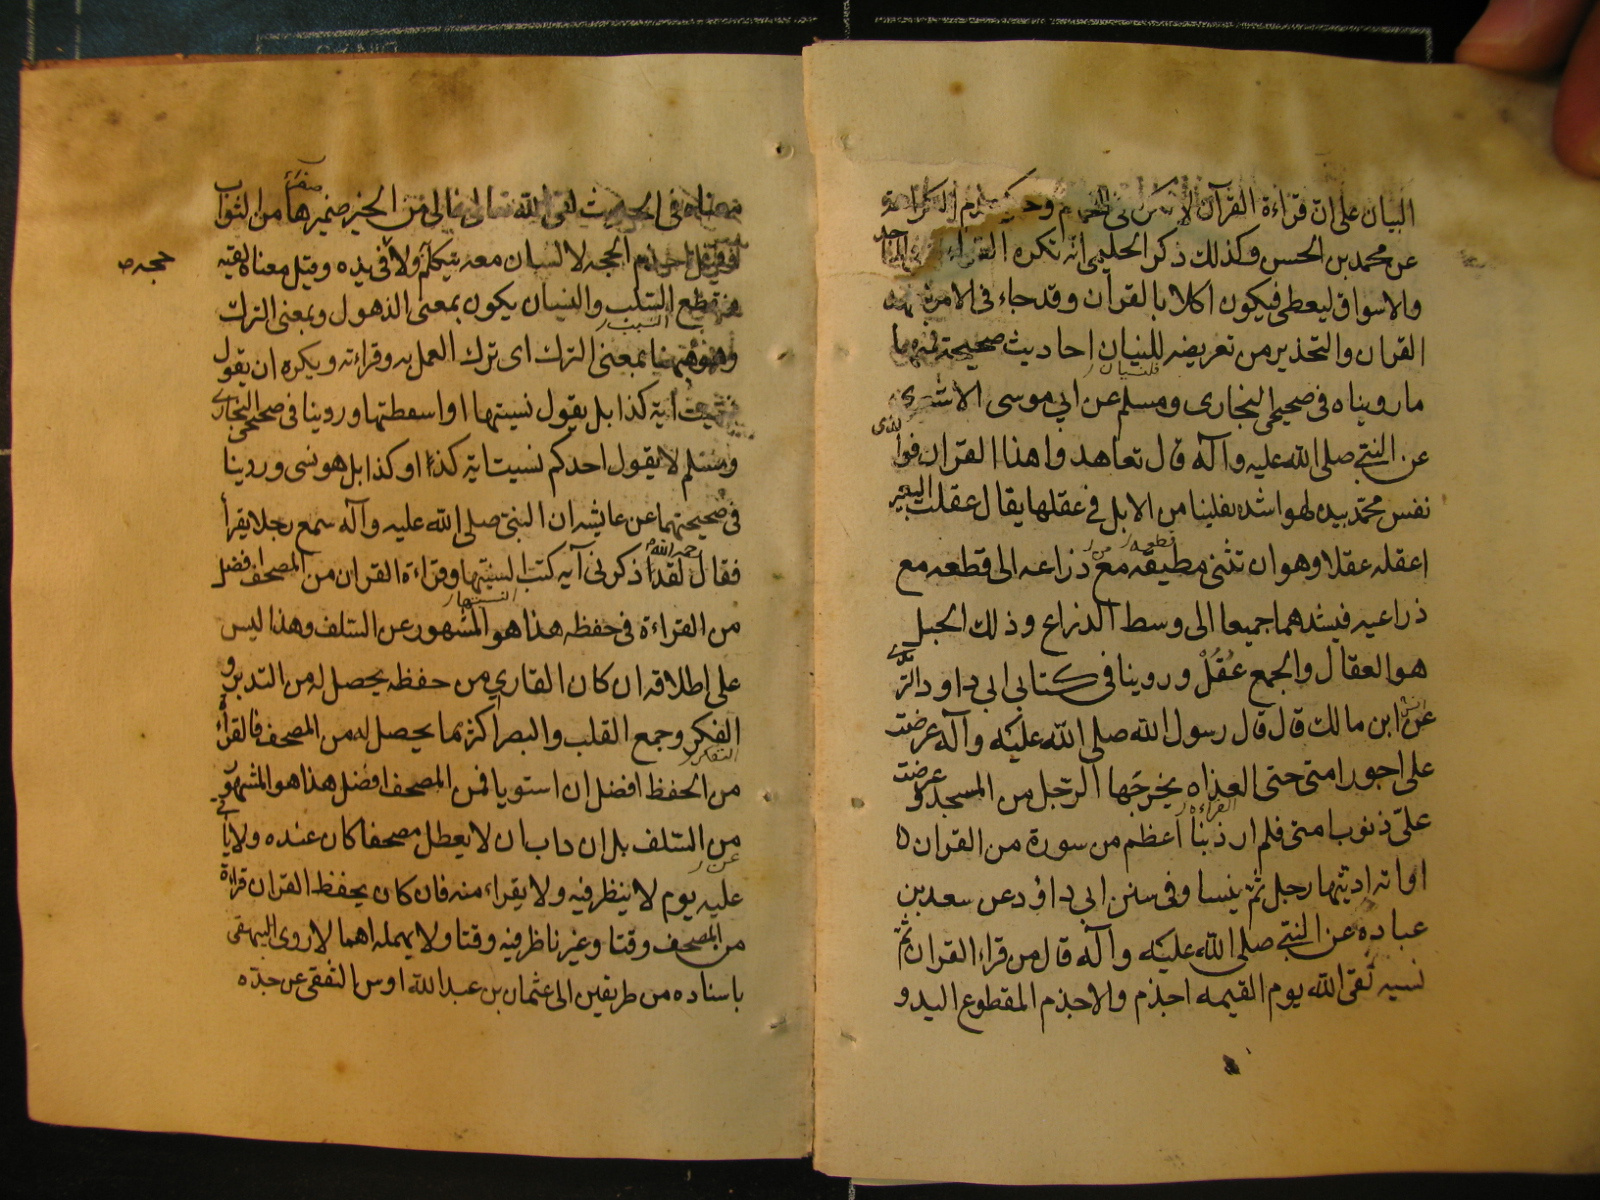 البيان على ان قراءة القرآن لا تكره في الحمام وحكى عدم الكراهة
عن محمد بن الحسن وكذلك ذكر الحليمي انه تكره القراءة
والاسواق ليعطى فيكون اكلا بالقران وقد جاء في الامر
القران والتحذير من تعريضه للنسيان احاديث صحيحة فمنها
فللنسيان
ما رويناه في صحيحي البخاري ومسلم عن ابي موسى الاشعري
عن النبي صلى الله عليه وآله قال تعاهدوا هذا القران فوالذى
نفس محمد بيده لهو اشد تفلينا من الابل في عقلها يقال عقلت البعير
اعقله عقلا وهو ان تثنى مطيقه مع ذراعه الى قطعه مع
ذراعيه فيشدهما جميعا الى وسط الذراع وذلك الحبل
هو العقال والجمع عُقُلْ وروينا في كتابي ابي داود والترمذي
عن ابن مالك قال قال رسول الله صلى الله عليه وآله عرضت
على اجور امتى حتى العذاه يخرجها الرجل من المسجد وعرضت
القراءة
علىّ ذنوب امتى فلم ار ذنبا اعظم من سورة من القران
او اته اديتها رجل ثم ينسا وفي سنن ابي داؤد عن سعد بن
عباده عن النبي صلى الله عليه وآله قال من قراء القران ثم
نسيه لقى الله يوم القيمه اجذم والاجذم المقطوع اليد و
معناه في الحديث لقى الله تعالى خالى من الخير صفيرها من الثواب
صفرها
اجذم الحجه لا لسان معه يتكلم ولا في يده وقيل معناه لقيه
حجه ص
منقطع السلب والنسيان يكون بمعنى الذهول وبمعنى الترك
السبب
وهو ههنا بمعنى الترك اى ترك العمل به وقراءته ويكره ان يقول
نسيت اية كذا بل يقول نسيتها او اسقطتها وروينا في صحيحي البخاري
ومسلم لا يقول احدكم نسيت اية كذا او كذا بل هو نسى وروينا
في صحيحيهما عن عايشه ان النبي صلى الله عليه وآله سمع رجلا يقرأ
فقال رحمه الله لقد اذكرنى آيه كتب السيتها وقراءة القران من المصحف افضل
انسيتها
من القراءة في حفظه هذا هو المشهور عن السلف وهذا ليس
على اطلاقه ان كان القاري من حفظه يحصل له من التدبر و
الفكر وجمع القلب والبصر اكثر مما يحصل له من المصحف فالقراءة
التفكر
من الحفظ افضل ان استويا فمن المصحف افضل هذا هو المشهور
من السلف بل ان داب ان لا يعطل مصحفا كان عنده ولا ياتى
عن
عليه يوم لا ينظر فيه ولا يقراء منه فان كان يحفظ القران قراءة
من المصحف وقتا وغير ناظر فيه وقتا ولا يهمله اهما لا روى البيهقى
باسناده من طريقين الى عثمان بن عبد الله اوس الثقفى عن جده